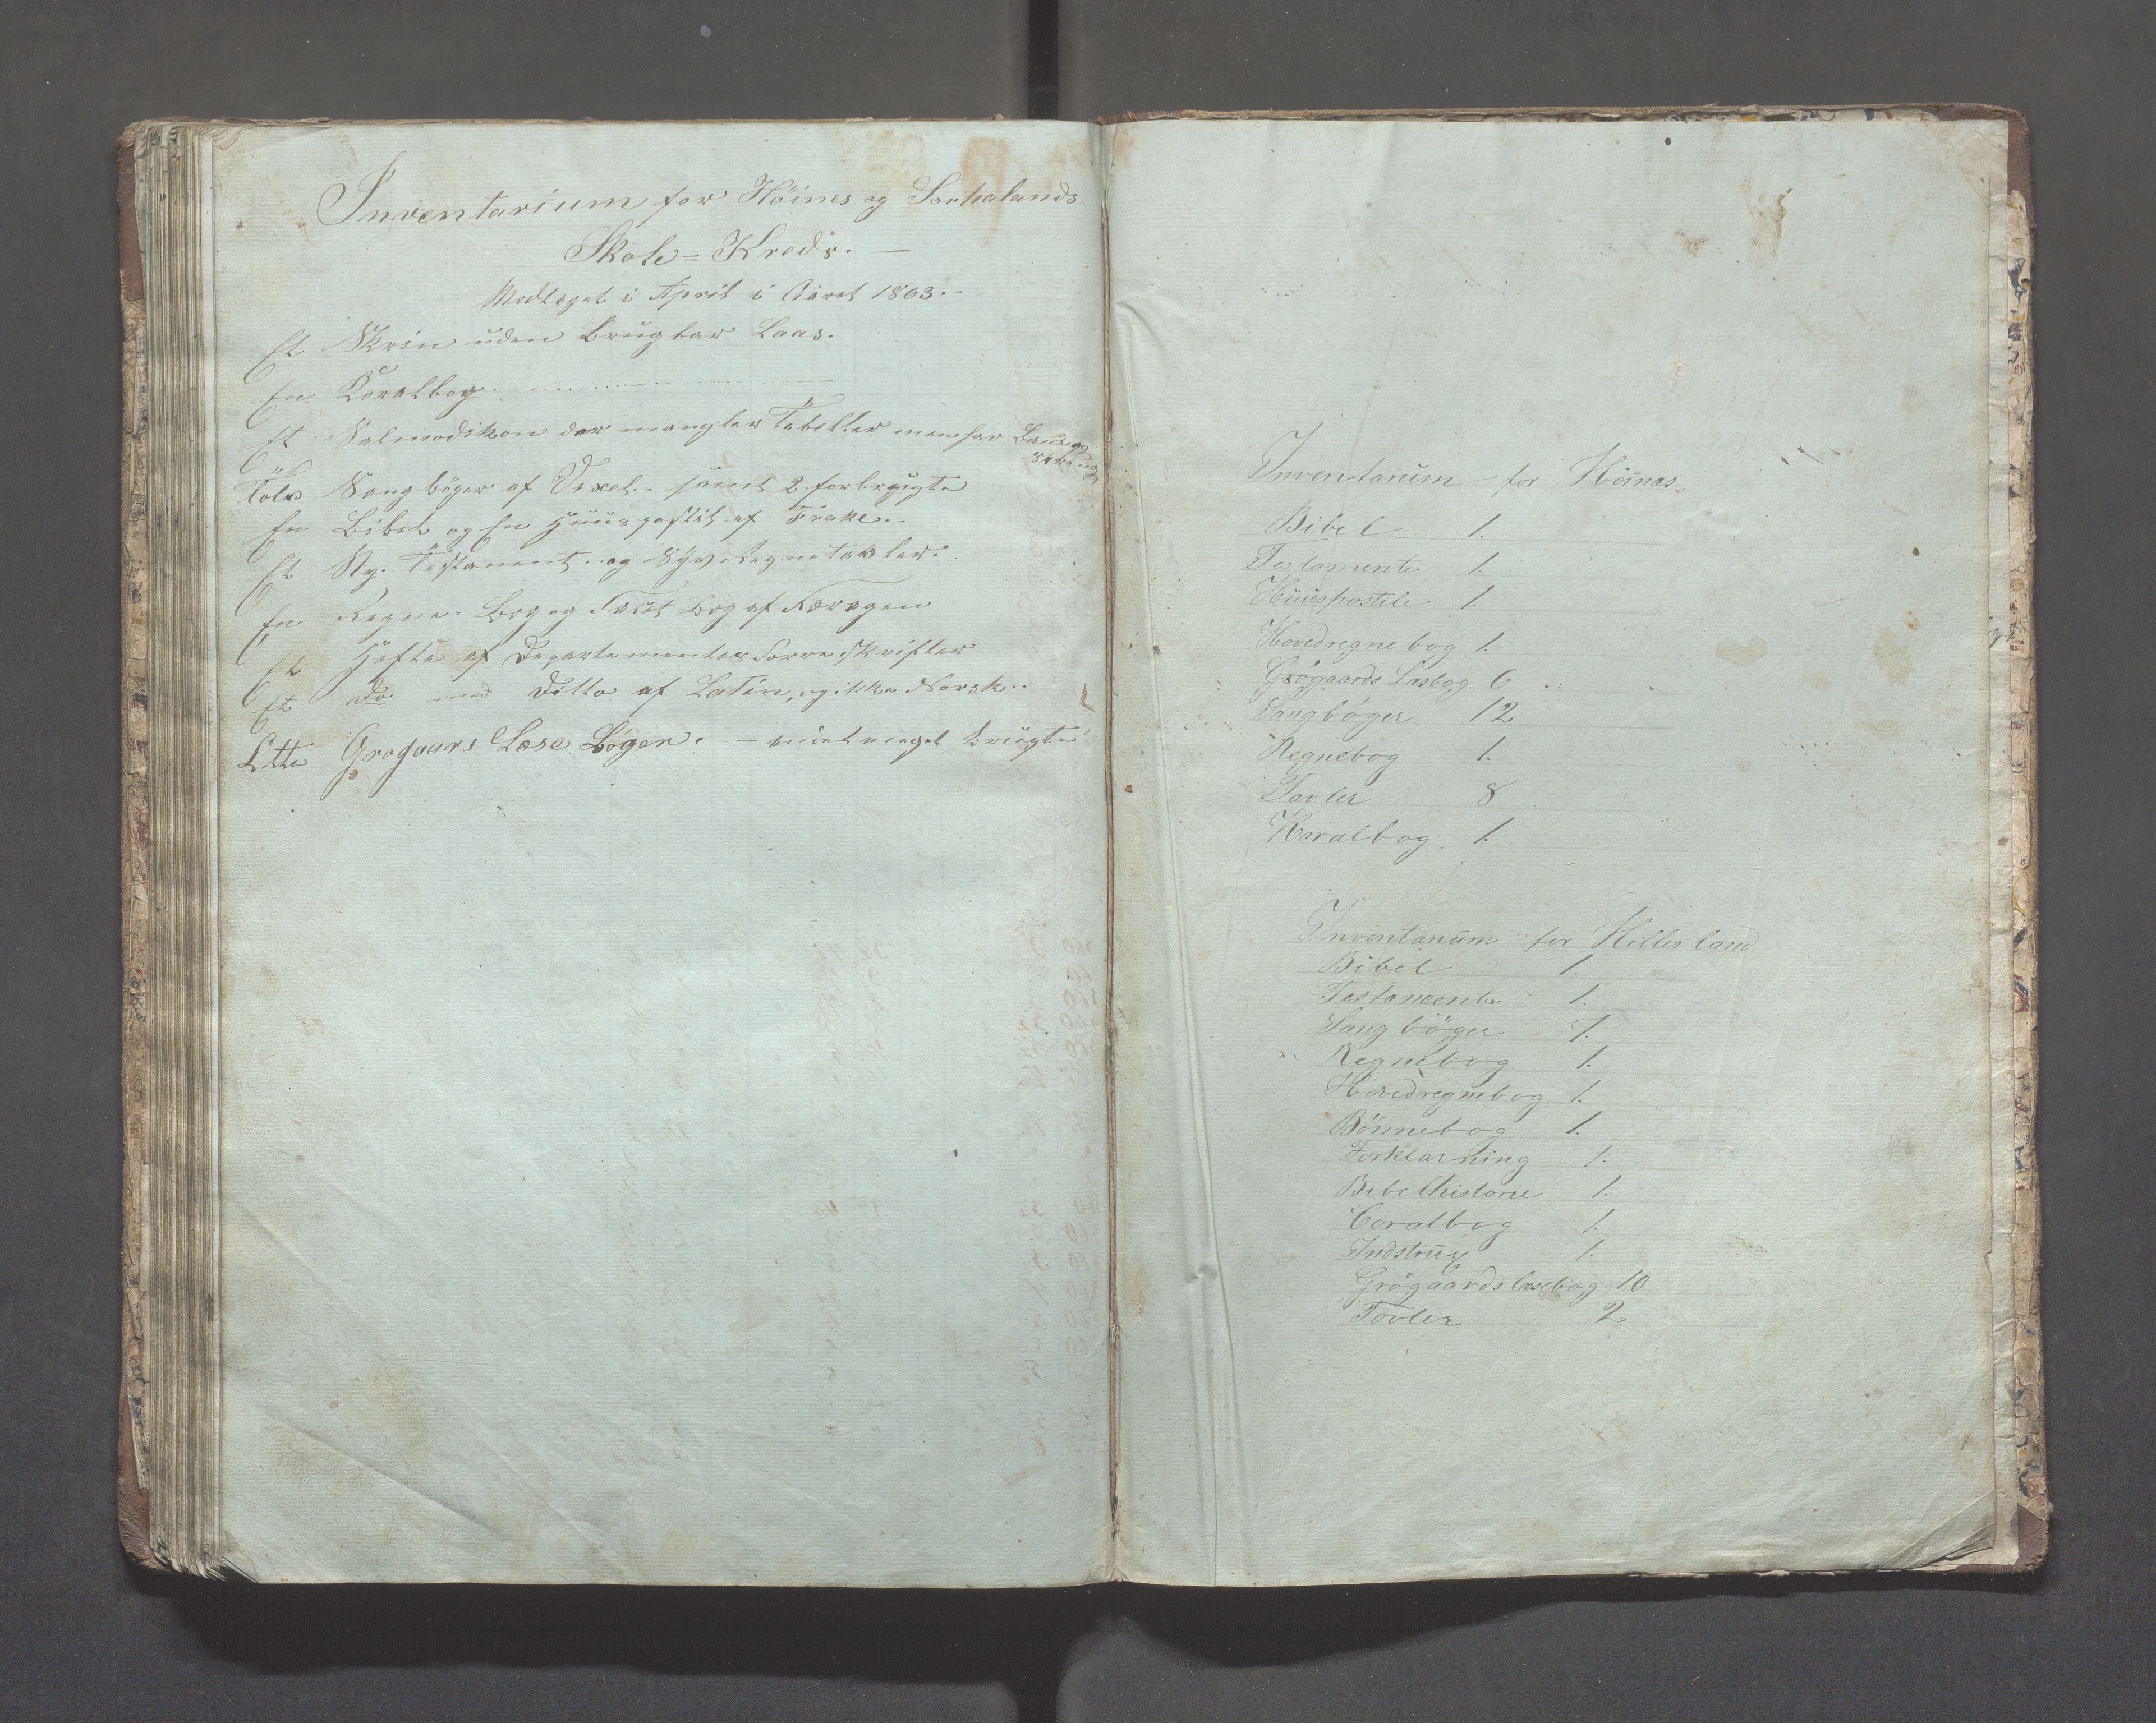 Inventarium for Höines og Sørhalands
Skole=Kreds. —
Modtaget i April i Aaret 1863.
Et Skrin uden brugbar Laas.
En Koralbog
Et Salmodikon der mangler Tabeller men har
Tolv Sangbøger af Vexel. samt 2 forbrugte
En Bibel og En Huuspostil af
Et Ny. Testament og Syv Regnetavler.
En Regne-Bog og Facit Bog af
Et Hefte af Departementes Forreskrifter
Et do med Ditto af Latin, og ikke Norsk.
Otte Grogaars Læse Bøger. — meget brugte
Inventarum for Höinæs
Bibel 1.
Testamente 1.
Huuspostile 1.
Hovedregnebog 1.
Grögaards Læsbog 6
Sangbøger 12
Regnebog 1.
Tavler 8
Koralbog 1.
Inventarum for Hillesland
Bibel 1.
Testamente 1.
Sangbøger 7.
Regnebog 1.
Hovedregnebog 1.
Bönnebog 1.
Forklarning 1.
Bibelhistorie 1.
Coralbog 1.
Indstrux 1.
Grögaards læsebog 10
Tavler 2